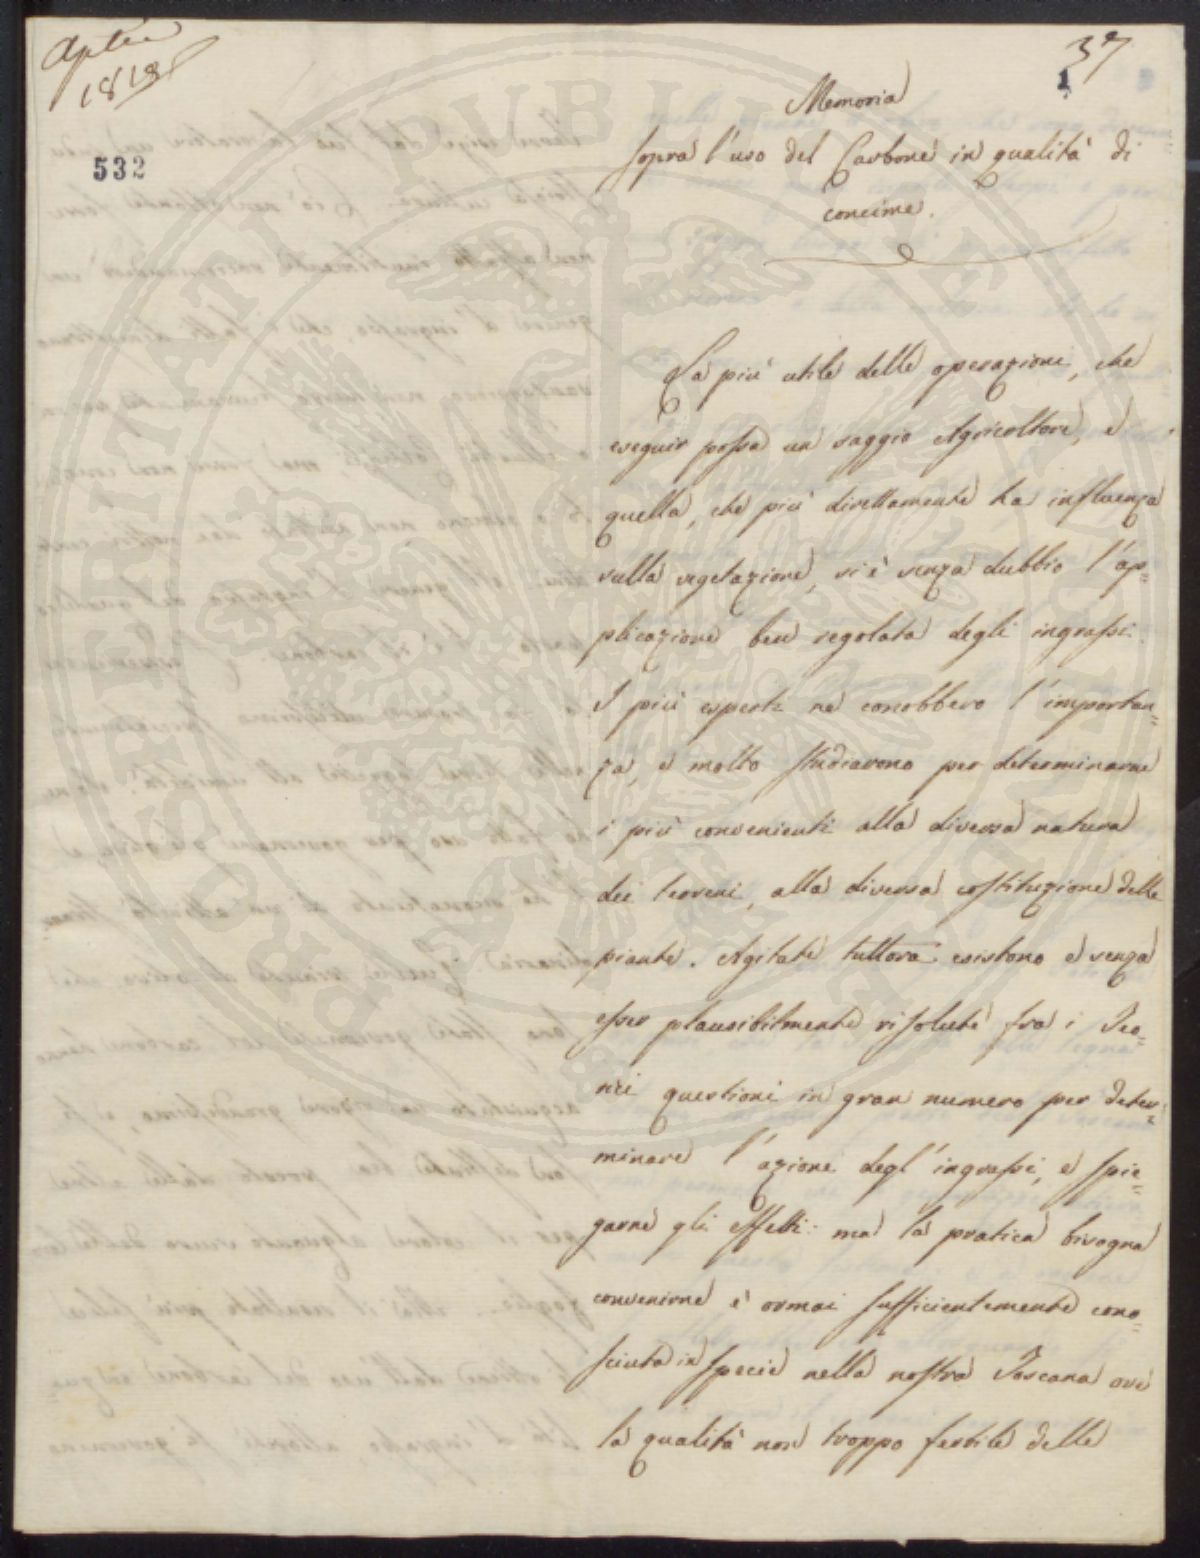 Aprile
1818
37
1
532
Memoria
sopra l'uso del Carbone in qualità di
concime.
La più utile delle operazioni, che
eseguir possa un saggio Agricoltore, e
quella, che più direttamente ha influenza
sulla vegetazione, si è senza dubbio l'ap=
plicazione ben regolata degli ingrassi.
I più esperti ne conobbero l'importan=
za, e molto studiarono per determinarne
i più convenienti alla diversa natura
dei terreni, alla diversa costituzione delle
piante. Agitate tuttora esistono e senza
esser plausibilmente risolute fra i Teo=
rici questioni in gran numero per deter=
minare l'azione degl'ingrassi, e spie=
garne gli effetti: ma la pratica bisogna
convenirne è ormai sufficientemente cono=
sciuta in specie nella nostra Toscana ove
la qualità non troppo fertile delle
PROSPERITATI PUBLICAE AUGENDAE